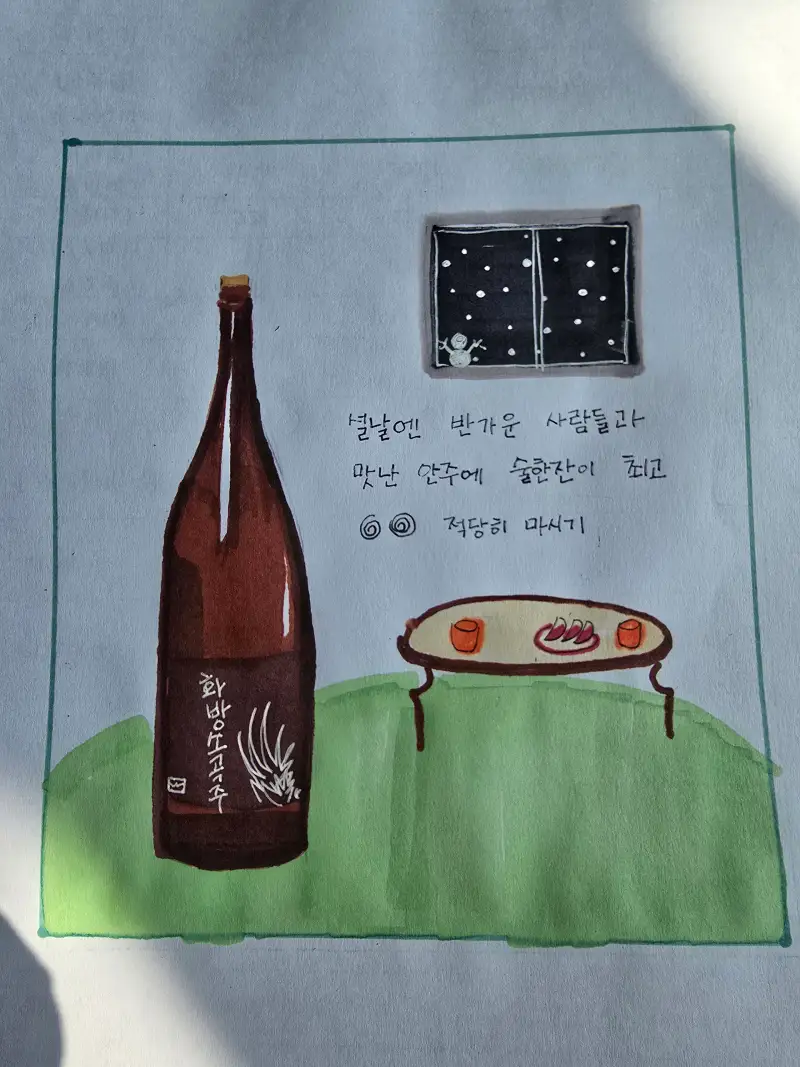 설날엔 반가운 사람들과
맛난 안주에 술한잔이 최고
적당히 마시기
화방소곡주